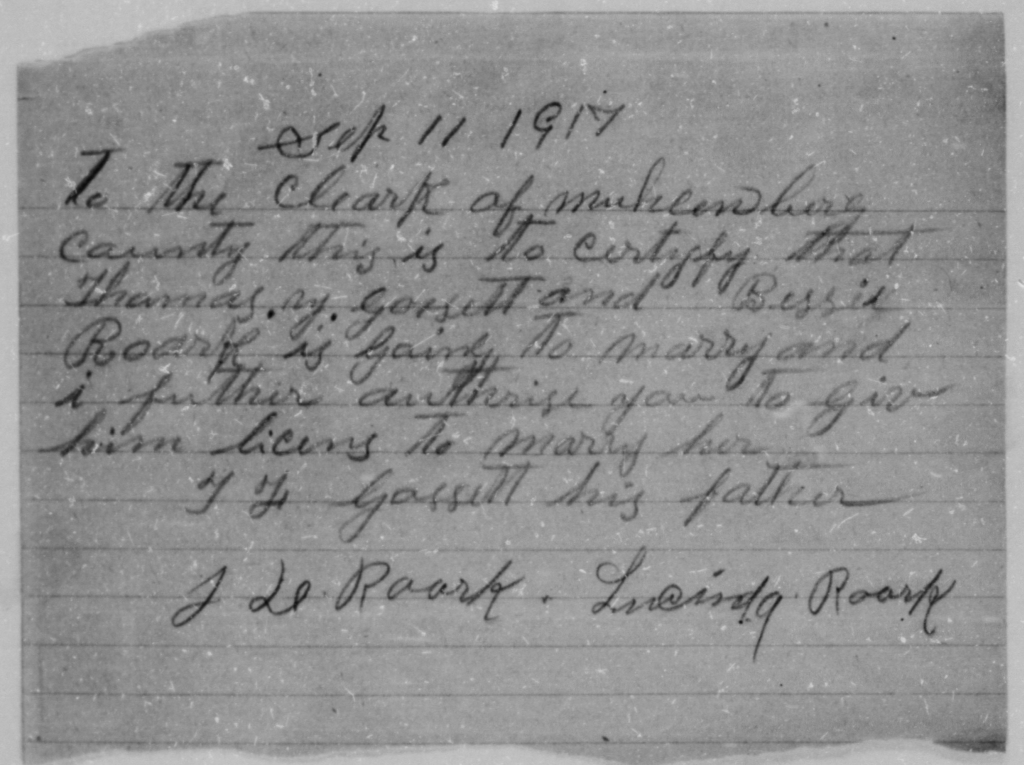 Sep 11 1917
To the Cleark of muhlenburg
county this is to certyfy that
Thomas. y. Gossett and Bessie
Roark is going to marry and
i futher authrise you to giv
him licens to marry her
T F Gossett his father
J De Roark. Lucinda Roark